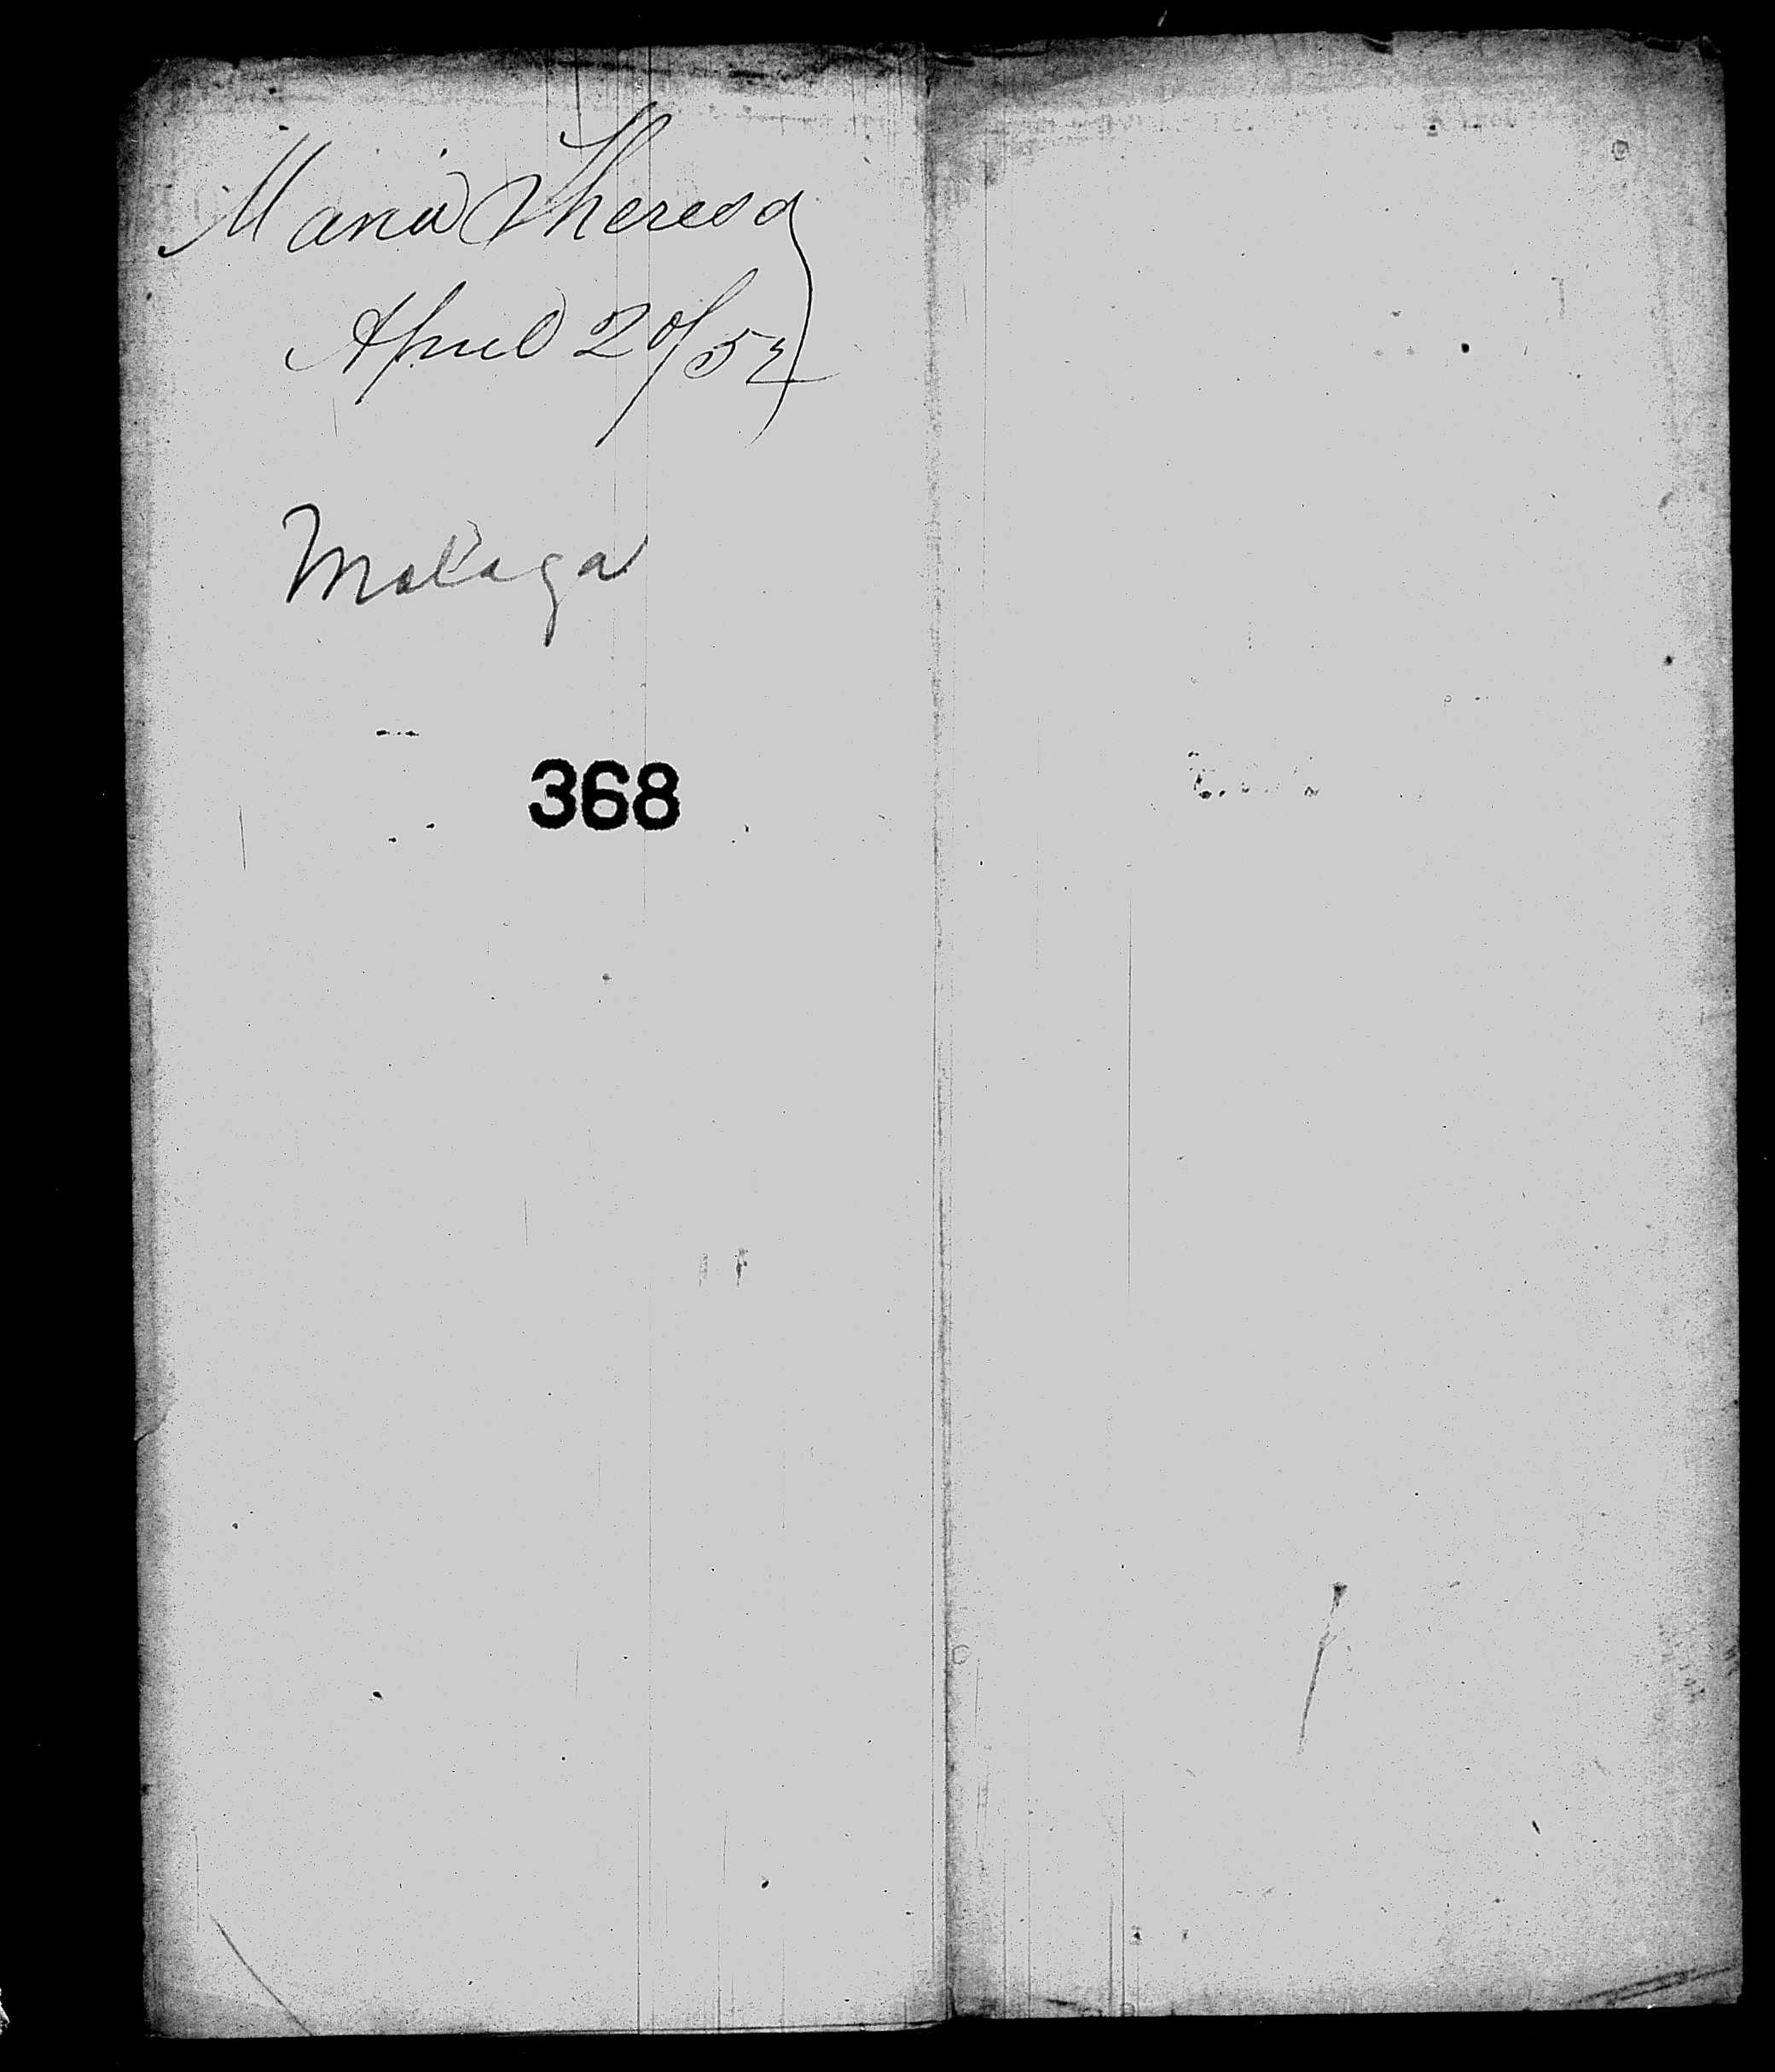 Maria Theresa
April 20/52
Malaga
368